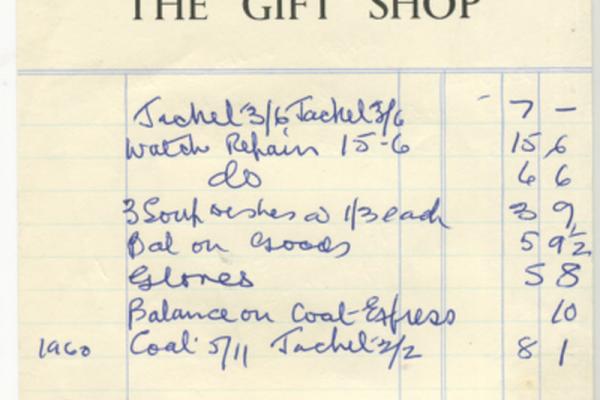 THE GIFT SHOP
Jachel 3/6 Jachel 3/6 - 7 -
Watch Repair 15-6 15 6
do 6 6
3 Soup dishes @ 1/3 each 3 9
Bal on Goods 5 9½
Gloves 5 8
Balance on Coat-Express 10
1960 Coal 5/11 Jachel 2/2 8 1